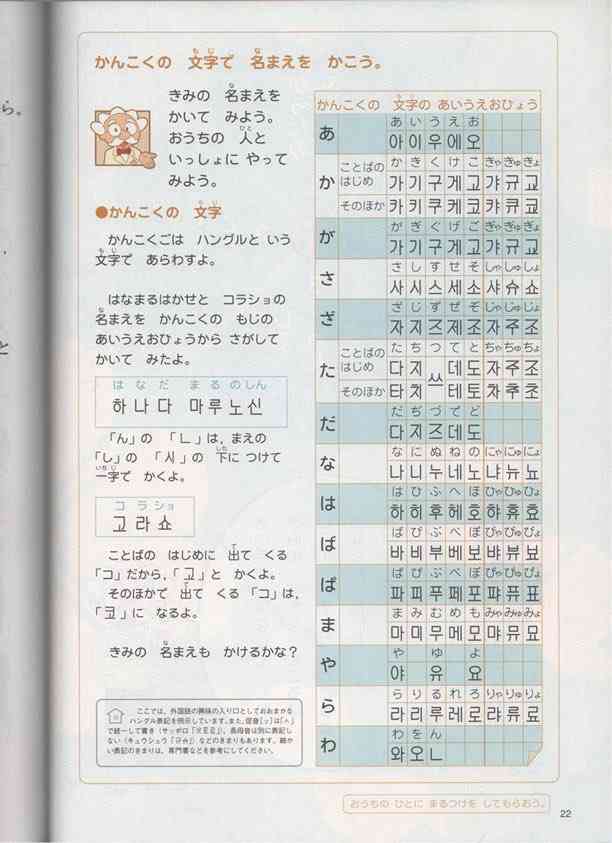 かんこくの 文字で 名まえを かこう。
きみの 名まえを
かいて みよう。
おうちの 人と
いっしょに やって
みよう。
●かんこくの 文字
かんこくごは ハングルと いう
文字で あらわすよ。
はなまるはかせと コラショの
名まえを かんこくの もじの
あいうえおひょうから さがして
かいて みたよ。
はなだ まるのしん
하나다 마루노신
「ん」の 「ㄴ」は，まえの
「し」の 「시」の 下に つけて
一字で かくよ。
コラショ
고라쇼
ことばの はじめに 出て くる
「コ」だから，「고」と かくよ。
そのほかで 出て くる 「コ」は，
「코」に なるよ。
きみの 名まえも かけるかな？
ここでは，外国語の興味の入り口としておおまかな
ハングル表記を例示しています。また，促音［ッ］は「ㅅ」
で統一して書き（サッポロ「삿포로」），長母音は別に表記し
ない（キュウシュウ「규슈」）などのきまりもあります。細か
い表記のきまりは，専門書などを参考にしてください。
かんこくの 文字の あいうえおひょう
あ
あ い う え お
아 이 우 에 오
か
ことばの はじめ
か き く け こ きゃ きゅ きょ
가 기 구 게 고 갸 규 교
そのほか
카 키 쿠 케 코 캬 큐 쿄
が
が ぎ ぐ げ ご ぎゃ ぎゅ ぎょ
가 기 구 게 고 갸 규 교
さ
さ し す せ そ しゃ しゅ しょ
사 시 스 세 소 샤 슈 쇼
ざ
ざ じ ず ぜ ぞ じゃ じゅ じょ
자 지 즈 제 조 자 주 조
た
ことばの はじめ
た ち つ て と ちゃ ちゅ ちょ
다 지 쓰 데 도 자 주 조
そのほか
타 치 테 토 차 추 초
だ
だ ぢ づ で ど
다 지 즈 데 도
な
な に ぬ ね の にゃ にゅ にょ
나 니 누 네 노 냐 뉴 뇨
は
は ひ ふ へ ほ ひゃ ひゅ ひょ
하 히 후 헤 호 햐 휴 효
ば
ば び ぶ べ ぼ びゃ びゅ びょ
바 비 부 베 보 뱌 뷰 뵤
ぱ
ぱ ぴ ぷ ぺ ぽ ぴゃ ぴゅ ぴょ
파 피 푸 페 포 퍄 퓨 표
ま
ま み む め も みゃ みゅ みょ
마 미 무 메 모 먀 뮤 묘
や
や ゆ よ
야 유 요
ら
ら り る れ ろ りゃ りゅ りょ
라 리 루 레 로 랴 류 료
わ
わ を ん
와 오 ㄴ
おうちの ひとに まるつけを してもらおう。
22